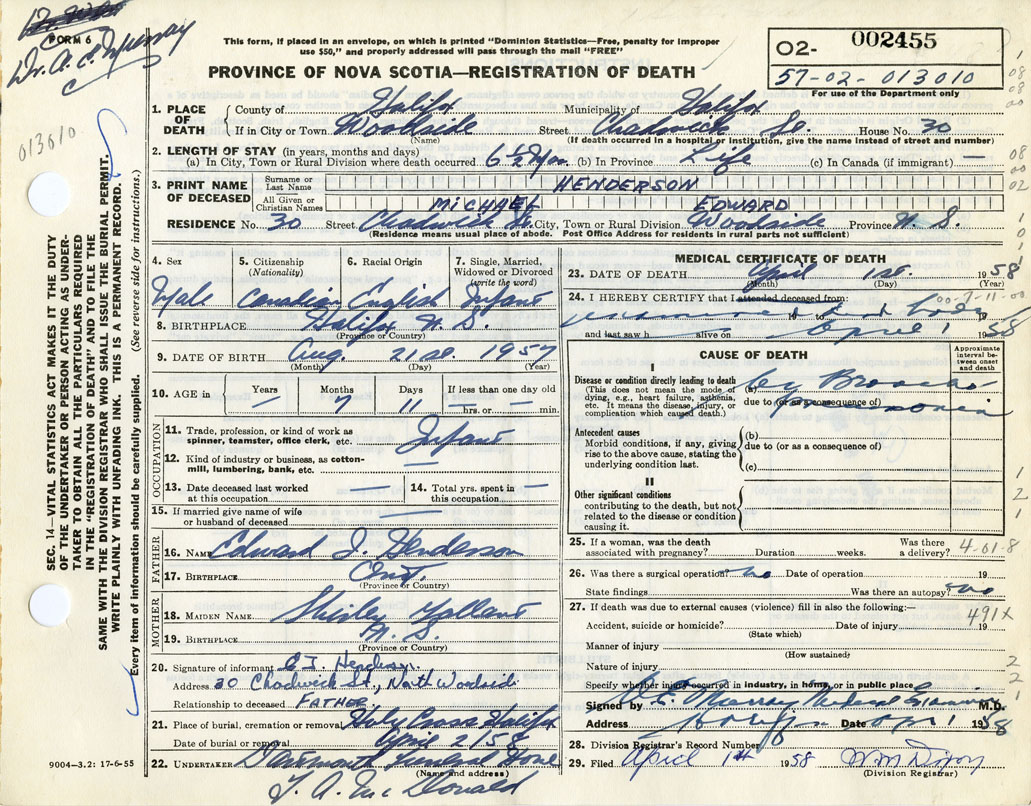 FORM 6
Dr. A. E. Murray
013010
This form, if placed in an envelope, on which is printed "Dominion Statistics—Free, penalty for improper
use $50," and properly addressed will pass through the mail "FREE"
PROVINCE OF NOVA SCOTIA—REGISTRATION OF DEATH
02- 002455
57-02-013010
For use of the Department only
1. PLACE OF DEATH { County of Halifax Municipality of Halifax
If in City or Town Woodside Street Chadwick St. House No. 30
(Name) (If death occurred in a hospital or institution, give the name instead of street and number)
2. LENGTH OF STAY (in years, months and days)
(a) In City, Town or Rural Division where death occurred 6 ½ Mon (b) In Province Life (c) In Canada (if immigrant) —
3. PRINT NAME OF DECEASED { Surname or Last Name HENDERSON
All Given or Christian Names MICHAEL EDWARD
RESIDENCE No. 30 Street Chadwick St. City, Town or Rural Division Woodside Province N. S.
(Residence means usual place of abode. Post Office Address for residents in rural parts not sufficient)
SEC. 14—VITAL STATISTICS ACT MAKES IT THE DUTY
OF THE UNDERTAKER OR PERSON ACTING AS UNDER-
TAKER TO OBTAIN ALL THE PARTICULARS REQUIRED
IN THE "REGISTRATION OF DEATH" AND TO FILE THE
SAME WITH THE DIVISION REGISTRAR WHO SHALL ISSUE THE BURIAL PERMIT.
WRITE PLAINLY WITH UNFADING INK. THIS IS A PERMANENT RECORD.
Every item of information should be carefully supplied. (See reverse side for instructions.)
4. Sex Male
5. Citizenship (Nationality) Canadian
6. Racial Origin English
7. Single, Married, Widowed or Divorced (write the word) Infant
8. BIRTHPLACE Halifax N. S.
(Province or Country)
9. DATE OF BIRTH Aug. 21st. 1957
(Month) (Day) (Year)
10. AGE in Years — Months 7 Days 11 If less than one day old — hrs. or — min.
OCCUPATION
11. Trade, profession, or kind of work as spinner, teamster, office clerk, etc. Infant
12. Kind of industry or business, as cotton-mill, lumbering, bank, etc. —
13. Date deceased last worked at this occupation —
14. Total yrs. spent in this occupation —
15. If married give name of wife or husband of deceased —
FATHER
16. NAME Edward J. Henderson
17. BIRTHPLACE Ont.
(Province or Country)
MOTHER
18. MAIDEN NAME Shirley
19. BIRTHPLACE N. S.
(Province or Country)
20. Signature of informant E J. Henderson
Address 30 Chadwick St., North Woodside
Relationship to deceased FATHER
21. Place of burial, cremation or removal Holy Cross Halifax
Date of burial or removal April 2/58
22. UNDERTAKER Dartmouth Funeral Home
(Name and address)
J. A. McDonald
9004—3.2: 17-6-55
MEDICAL CERTIFICATE OF DEATH
23. DATE OF DEATH April 1st. 1958
(Month) (Day) (Year)
24. I HEREBY CERTIFY that I attended deceased from: 00-7-11-00
examined dead body
19 to 19
and last saw h alive on April 1 1958
CAUSE OF DEATH
Approximate interval between onset and death
I
Disease or condition directly leading to death
(This does not mean the mode of dying, e.g., heart failure, asthenia, etc. It means the disease, injury, or complication which caused death.)
(a) Broncho
due to (or as a consequence of)
pneumonia
Antecedent causes
Morbid conditions, if any, giving rise to the above cause, stating the underlying condition last.
(b)
due to (or as a consequence of)
(c)
II
Other significant conditions
contributing to the death, but not related to the disease or condition causing it.
25. If a woman, was the death associated with pregnancy? Duration weeks. Was there a delivery? 4-01-8
26. Was there a surgical operation? no Date of operation 19
State findings Was there an autopsy? no
27. If death was due to external causes (violence) fill in also the following:— 491X
Accident, suicide or homicide? Date of injury 19
(State which)
Manner of injury
(How sustained)
Nature of injury
Specify whether injury occurred in industry, in home, or in public place
Signed by A. E. Murray Medical Examiner M.D.
Address Halifax Date Apr 1 1958
28. Division Registrar's Record Number
29. Filed April 1st 1958
(Division Registrar)